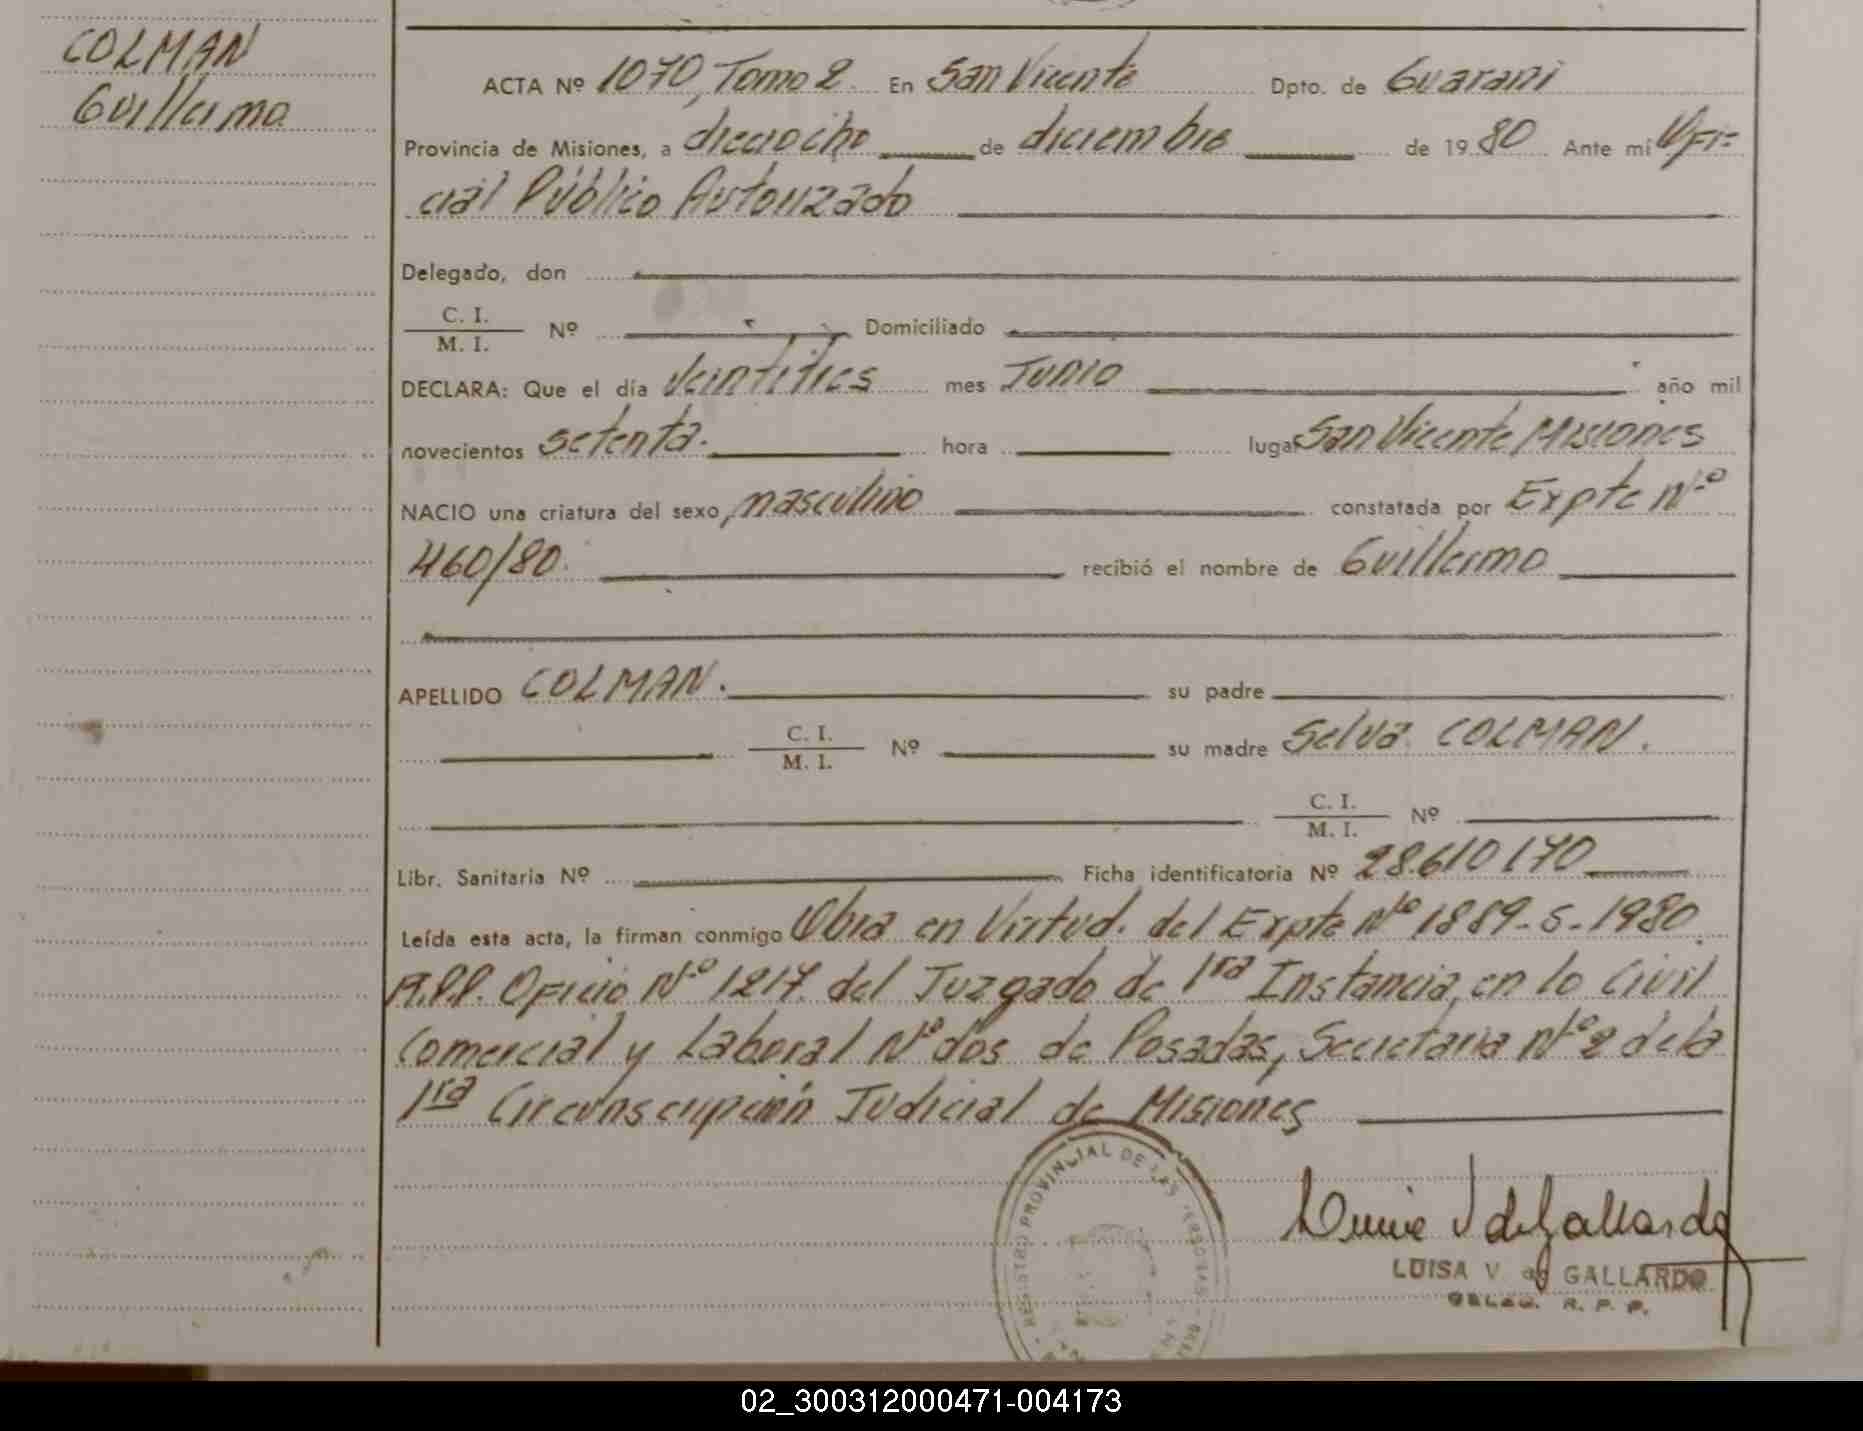 COLMAN
Guillermo
ACTA Nº 1070, Tomo 2. En San Vicente Dpto. de Guarani
Provincia de Misiones, a dieciocho de diciembre de 1980 Ante mi Ofi=
cial Público Autorizado
Delegado, don
C. I.
M. I. Nº Domiciliado
DECLARA: Que el día Veintitres mes Junio año mil
novecientos setenta. hora lugar San Vicente Misiones
NACIO una criatura del sexo, masculino constatada por Expte Nº
460/80. recibió el nombre de Guillermo
APELLIDO COLMAN. su padre
C. I.
M. I. Nº su madre Selva COLMAN.
C. I.
M. I. Nº
Libr. Sanitaria Nº Ficha identificatoria Nº 28.610170
Leída esta acta, la firman conmigo Obra en Virtud. del Expte Nº 1889-S-1980.
R.P.P. Oficio Nº 1217. del Juzgado de 1ra Instancia, en lo Civil
Comercial y Laboral Nº dos de Posadas, Secretaria Nº 2 de la
1ra Circunscripción Judicial de Misiones
REGISTRO PROVINCIAL DE LAS PERSONAS
LUISA V. de GALLARDO
DELEG. R. P. P.
02_300312000471-004173